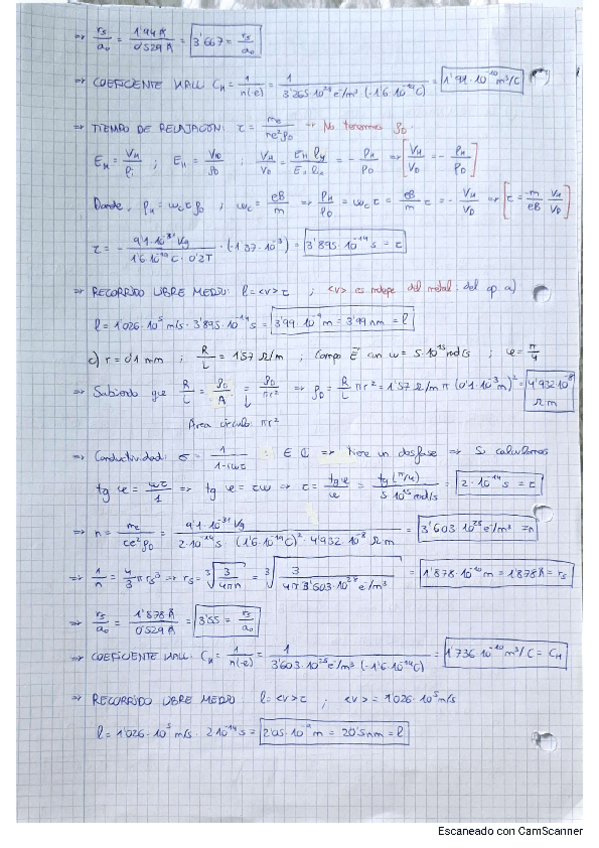 ⇒ rs/a₀ = 1'94 Å/0'529 Å = 3'667 = rs/a₀
⇒ COEFICIENTE HALL C_H = 1/n(-e) = 1/3'265·10²⁸ e⁻/m³ (-1'6·10⁻¹⁹C) = 1'91·10⁻¹⁰ m³/C
⇒ TIEMPO DE RELAJACIÓN: τ = me/ne²ρ₀ → No tenemos ρ₀
E_H = V_H/ρ ; E_H = V_D/ρ₀ ; V_H/V_D = = - ρ_H/ρ_D ⇒ [V_H/V_D = - ρ_H/ρ_D]
Donde, ρ_H = ωc τ ρ₀ ; ωc = eB/m ⇒ ρ_H/ρ_D = ωc τ = eB/m τ = - V_H/V_D ⇒ [τ = -m/eB V_H/V_D]
τ = - 9'1·10⁻³¹ Kg/1'6·10⁻¹⁹ C · 0'2T · (-1'37·10⁻³) = 3'895·10⁻¹⁴ s = τ
⇒ RECORRIDO LIBRE MEDIO: l = <v>τ ; <v> es indepe del metal: del ap. a)
l = 1'026·10⁵ m/s · 3'895·10⁻¹⁴ s = 3'99·10⁻⁹ m = 3'99 nm = l
c) r = 0'1 mm ; R/L = 1'57 Ω/m ; Campo E con ω = 5·10¹³ rad/s ; φ = π/4
⇒ Sabiendo que R/L = ρ₀/A = ρ₀/πr² ⇒ ρ₀ = R/L πr² = 1'57 Ω/m π (0'1·10⁻³m)² = 4'932·10⁻⁸ Ω m
Área círculo: πr²
⇒ Conductividad: σ = 1/1-iωτ ∈ ℂ ⇒ tiene un desfase ⇒ Si calculamos
tg φ = ωτ/1 ⇒ tg φ = τω ⇒ τ = tg φ/ω = tg(π/4)/5·10¹³ rad/s = 2·10⁻¹⁴ s = τ
⇒ n = me/τe²ρ₀ = 9'1·10⁻³¹ Kg/2·10⁻¹⁴ s (1'6·10⁻¹⁹C)² · 4'932·10⁻⁸ Ω m = 3'603·10²⁸ e⁻/m³ = n
⇒ 1/n = 4/3 π rs³ ⇒ rs = ³√(3/4πn) = ³√(3/4π 3'603·10²⁸ e⁻/m³) = 1'878·10⁻¹⁰ m = 1'878 Å = rs
⇒ rs/a₀ = 1'878 Å/0'529 Å = 3'55 = rs/a₀
⇒ COEFICIENTE HALL: C_H = 1/n(-e) = 1/3'603·10²⁸ e⁻/m³ (-1'6·10⁻¹⁹C) = 1'736·10⁻¹⁰ m³/C = C_H
⇒ RECORRIDO LIBRE MEDIO: l = <v>τ ; <v> = 1'026·10⁵ m/s
l = 1'026·10⁵ m/s · 2·10⁻¹⁴ s = 2'05·10⁻⁹ m = 20'5 nm = l
Escaneado con CamScanner